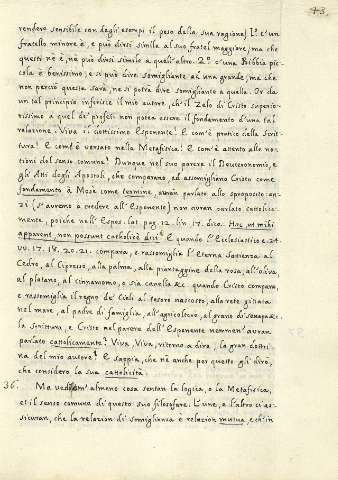 73.
rendere sensibile con degli esempi il peso della sua ragione) 1.º c'è un
fratello minore è, e può dirsi simile al suo fratel maggiore, ma che
questi nè è, nè può dirsi simile a quell'altro. 2.º c'è una Bibbia pic-
cola è benissimo, e si può dire somigliante ad una grande, ma che
non perciò questa sarà, nè si potrà dire somigliante a quella. Or da
un tal principio inferisce il mio autore, ch'il Zelo di Cristo superio-
rissimo a quel de' profeti non potea essere il fondamento d'una tal
relazione. Viva il dottissimo Esponente! E com'è pratico della Scrit-
tura! E com'è versato nella Metafisica! E com'è attento alle no-
zioni del senso comune! Dunque nel suo parere il Deuteronomio, e
gli Atti degli Apostoli, che comparano, ed assomigliano Cristo come
fondamento à Mosè come termine, auran parlato allo sproposito: an-
zi (s'auremo a credere all'Esponente) non auran parlato cattolica-
mente, poichè nell'Espos. lat. pag. 12. lin. 17. dice. Hoc ut mihi
apparent non possunt catholicè dici. E quando l'Ecclesiastico c. 24.
vv. 17. 18. 20. 21. compara, e rassomiglia l'Eterna Sapienza al
Cedro, al Cipresso, alla palma, alla piantaggine della rosa, all'oliva
al platano, al cinnamomo, o sia canella &c. quando Cristo compara,
e rassomiglia il regno de' Cieli al tesoro nascosto, alla rete gittata
nel mare, al padre di famiglia, all'agricoltore, al grano di senapa &c.
la Scrittura, e Cristo nel parere dell'Esponente nemmen' auran
parlato cattolicamente? Viva, Viva, ritorno a dire, la gran dottri-
na del mio autore! E sappia, che nè anche per questo gli dirò,
che considero la sua catholicità.
36. Ma vediam' almeno cosa sentan la logica, e la Metafisica,
et il senso comune di questo suo filosofare. L'une, e l'altro ci as-
sicuran, che la relazion di somiglianza è relazion mutua, e ch'in